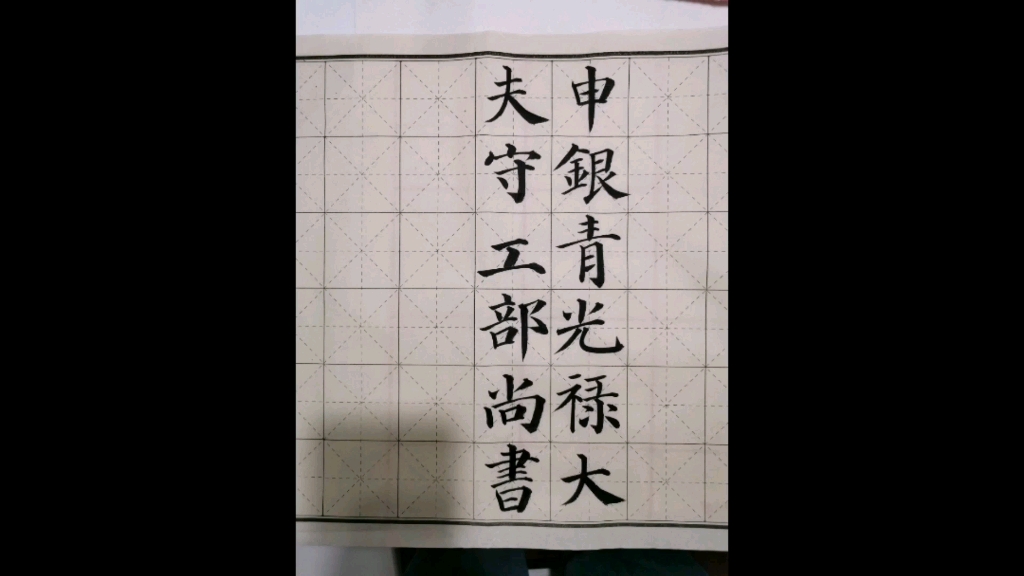 申銀青光禄大
夫守工部尚書